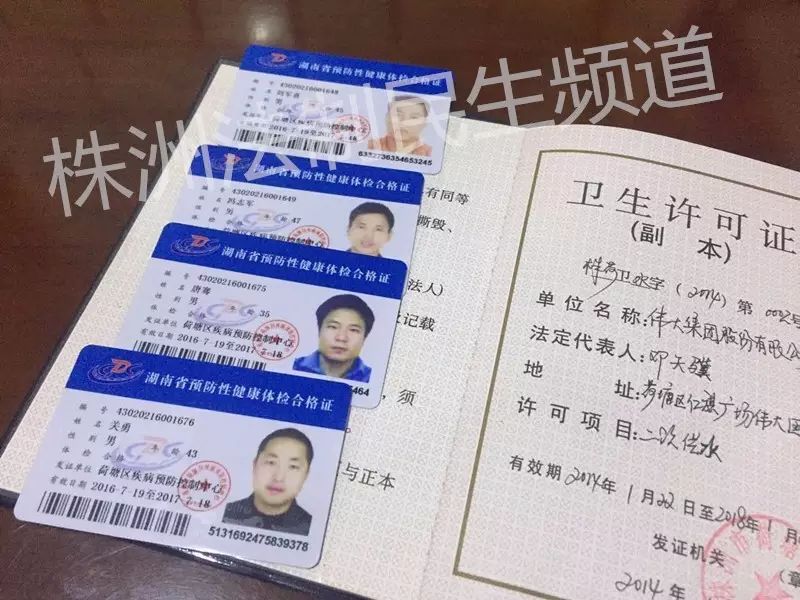 株洲法制民生频道
湖南省预防性健康体检合格证
编 号 43020216001648
性 别 男 年 龄 45
体 检 合格
发证单位 荷塘区疾病预防控制中心
有效日期 2016-7-19至2017-7-18
6332736354653245
湖南省预防性健康体检合格证
编 号 43020216001649
姓 名 冯志军
性 别 男 年 龄 47
体 检 合格
发证单位 荷塘区疾病预防控制中心
湖南省预防性健康体检合格证
编 号 43020216001675
姓 名 唐骞
性 别 男 年 龄 35
体 检 合格
发证单位 荷塘区疾病预防控制中心
有效日期 2016-7-19至2017-7-18
5464
湖南省预防性健康体检合格证
编 号 43020216001676
姓 名 关勇
性 别 男 年 龄 43
体 检 合格
发证单位 荷塘区疾病预防控制中心
有效日期 2016-7-19至2017-7-18
5131692475839378
有同等
撕毁、
法人)
记载
，须
与正本
卫生许可证
(副 本)
株荷卫水字(2014)第 0002号
单位名称:伟大集团股份有限公
法定代表人:邓天骥
地 址:荷塘区仁德广场伟大国
许可项目:二次供水
有效期 2014年 1月22日至2018年1月
发证机关
(章
2014年